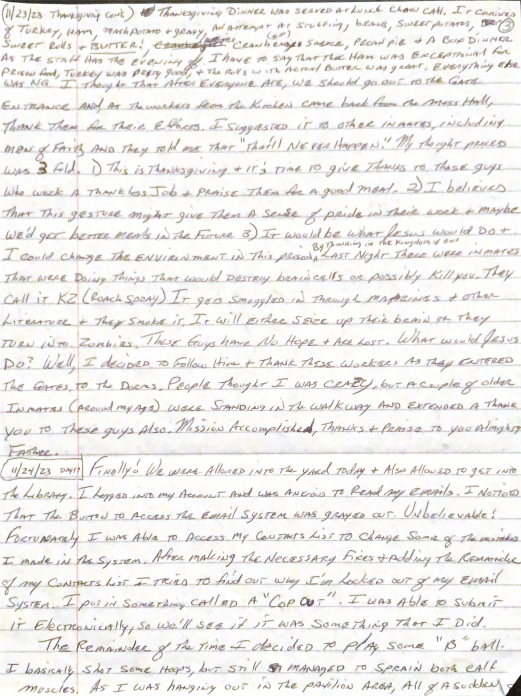 (11/23/23 Thanksgiving Cont.) Thanksgiving Dinner was served at Lunch Chow Call. It consisted
of Turkey, Ham, mash potato + gravy, an attempt at stuffing, beans, sweet potatoes,
Sweet Rolls + Butter! Cranberry sauce, Pecan pie + A Box Dinner
As the staff has the evening off. I have to say that the Ham was exceptional for
Prison food, Turkey was pretty good, + the Rolls with actual Butter was great. Everything else
was NG. I thought that after everyone ate, we should go out to the gate
entrance and as the workers from the kitchen came back from the Mess Hall,
Thank them for their efforts. I suggested it to other inmates, including
men of faith and they told me that "That'll Never Happen." My thought process
was 3 fold. 1) This is Thanksgiving + it's time to give thanks to those guys
who work a thankless job + praise them for a good meal. 2) I believed
that this gesture might give them a sense of pride in their work + maybe
we'd get better meals in the future 3) It would be what Jesus would do +
I could change the environment in this prison, By Thinking in the Kingdom of God Last night there were inmates
that were doing things that would destroy brain cells or possibly kill you. They
call it KZ (Roach Spray) It gets smuggled in through magazines + other
Literature + they smoke it. It will either seize up their brain or they
turn into Zombies. These guys have no hope + are lost. What would Jesus
Do? Well, I decided to follow Him + thank these workers as they entered
the gates, to the dorms. People thought I was crazy, but a couple of older
inmates (around my age) were standing in the walkway and extended a thank
you to these guys also. Mission Accomplished, Thanks + Praise to you Almighty
Father.
(11/24/23 Day Finally! We were allowed into the yard today + also allowed to get into
the Library. I hopped into my account and was anxious to read my emails. I noticed
that the button to access the email system was grayed out. Unbelievable!
Fortunately I was able to access my contacts list to change some of the mistakes
I made in the system. After making the necessary fixes + adding the remainder
of my contacts list I tried to find out why I'm locked out of my email
system. I put in something called a "Cop Out". I was able to submit
it electronically, so we'll see if it was something that I did.
The remainder of the time I decided to play some "B" ball.
I basically shot some hoops, but still managed to sprain both calf
muscles. As I was hanging out in the pavilion area, all of a sudden